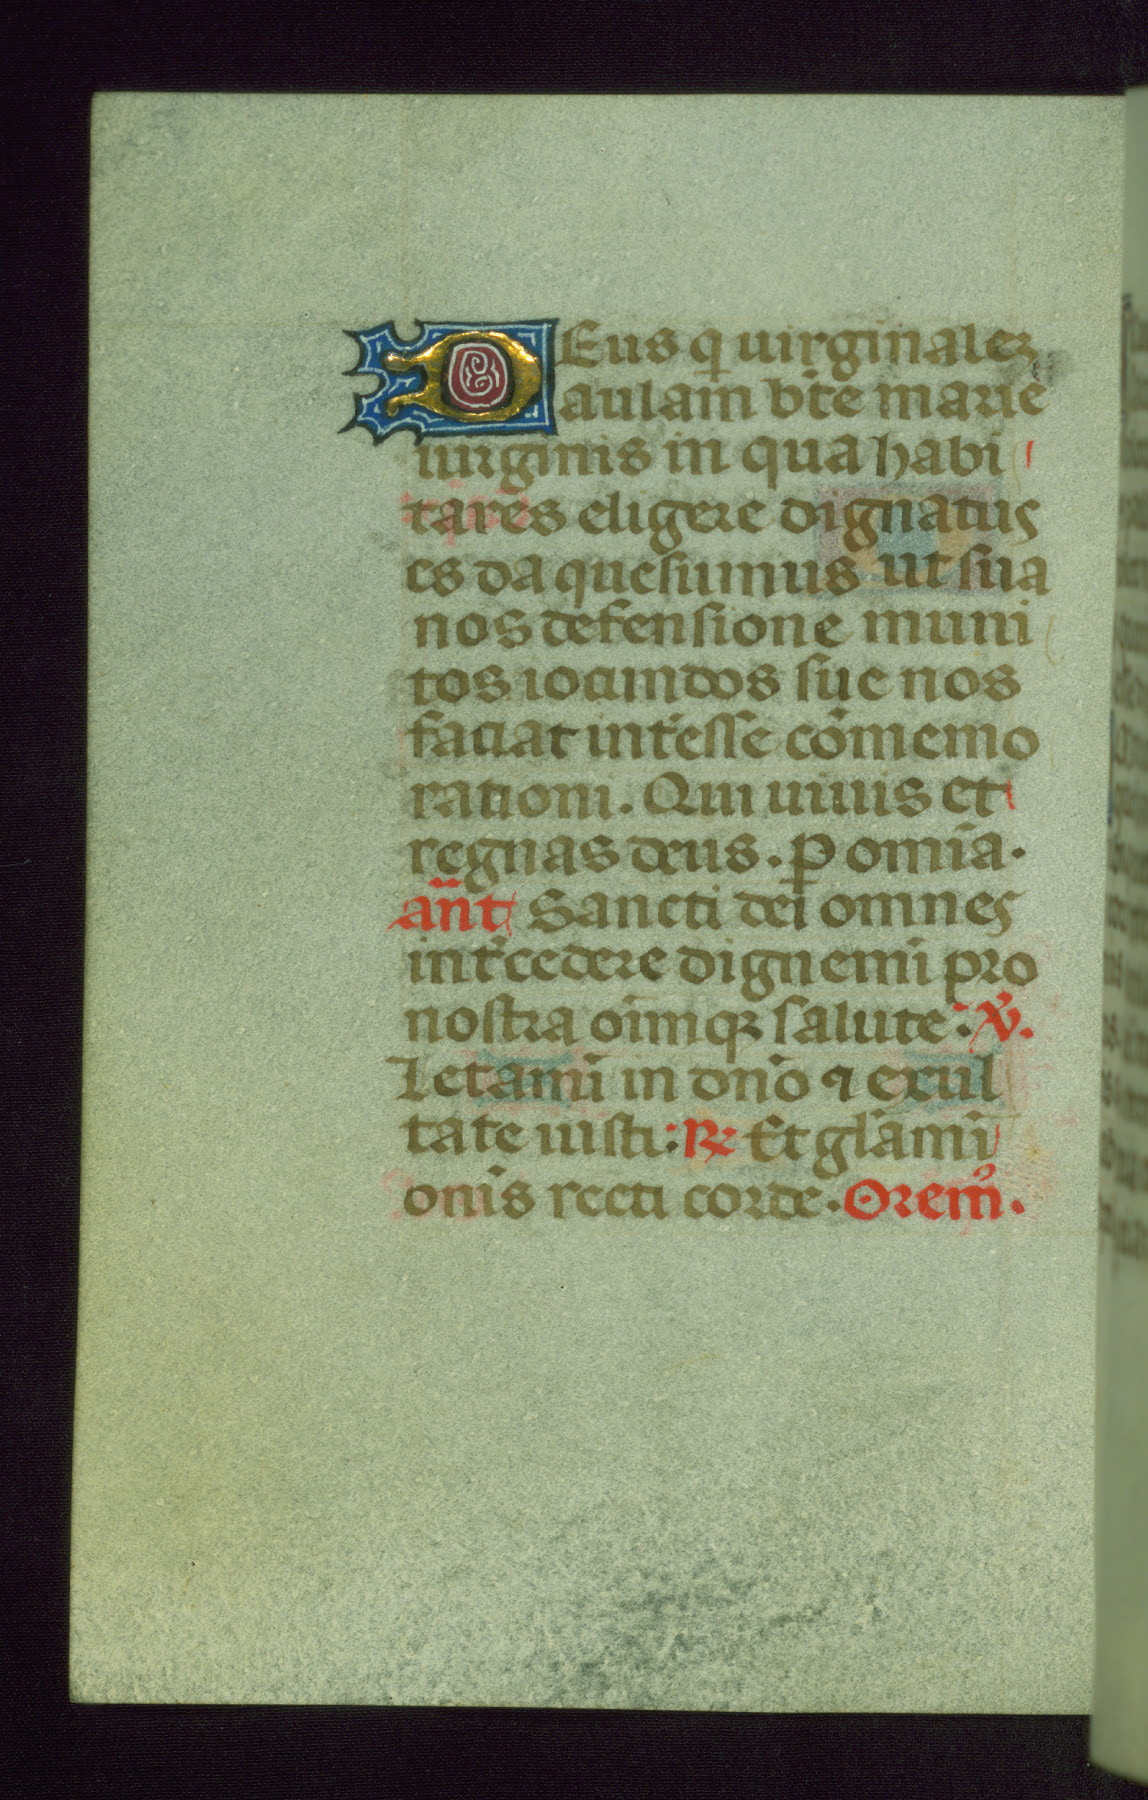 DEus qi uirginalez
aulam bte marie
uirginis in qua habi
tares eligere dignatus
es da quesumus ut sua
nos defensione muni
tos iocundos sue nos
faciat intesse comemo
rationi. Qui uiuis et
regnas deus. P omia.
ant Sancti dei omnes
intcedere dignemi pro
nostra oimqz salute: V.
Letami in dno ⁊ exul
tate iusti: R Et glami
onis recti corde. Orem.